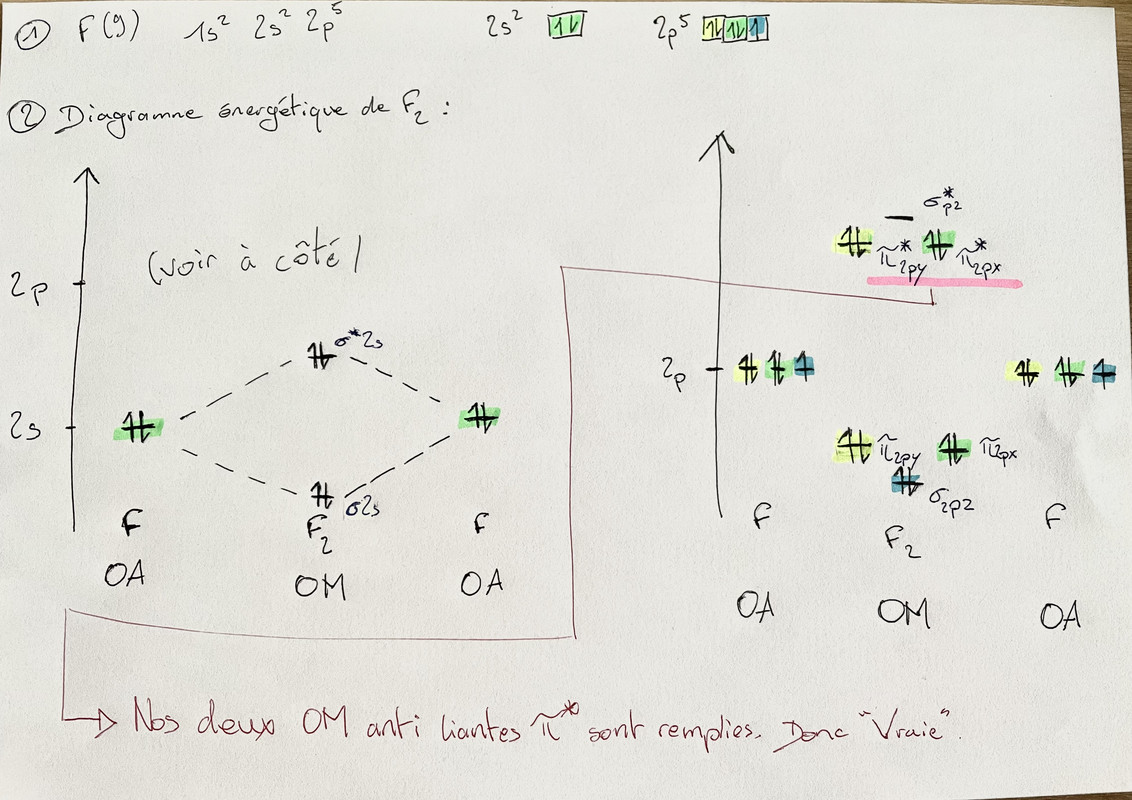 ① F(g) 1s² 2s² 2p⁵ 2s² ↑↓ 2p⁵ ↑↓ ↑↓ ↑
② Diagramme énergétique de F₂ :
(voir à côté)
2p
σ*2s
2s
σ2s
F F₂ F
OA OM OA
σ*p2
π*2py π*2px
2p
π2py π2px
σ2p2
F F₂ F
OA OM OA
Nos deux OM anti liantes π* sont remplies. Donc "Vraie".